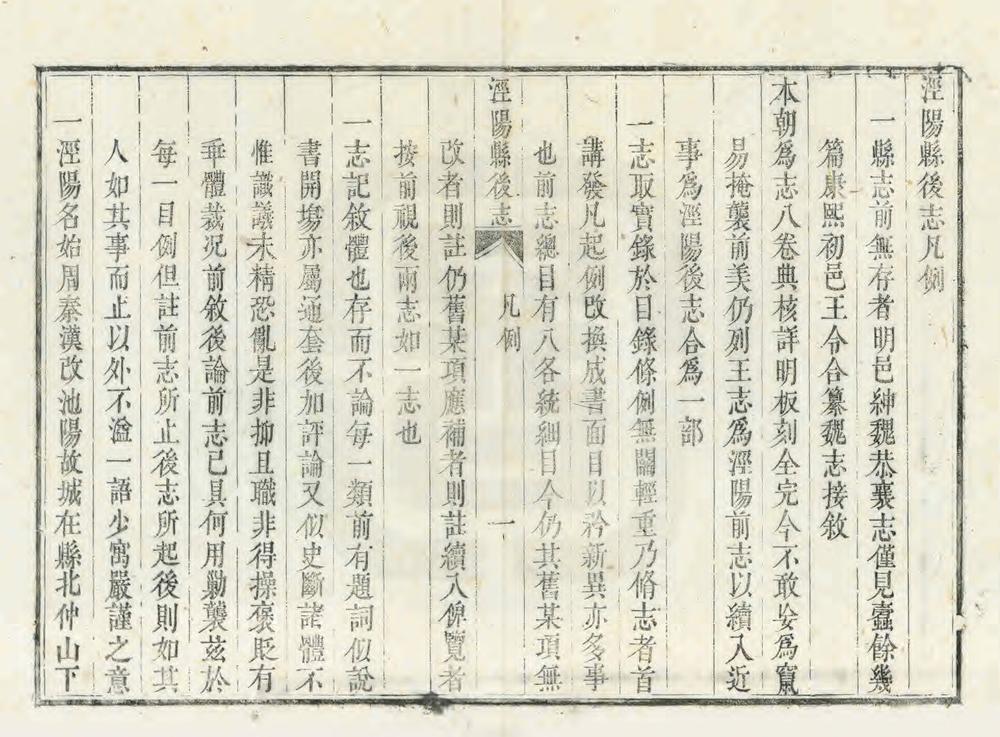 涇陽縣後志凡例
一縣志前無存者明邑紳魏恭襄志僅見蠹餘幾
篇康熙初邑王令合纂魏志接敘
本朝爲志八卷典核詳明板刻全完今不敢妄爲竄
易掩襲前美仍列王志爲涇陽前志以續入近
事爲涇陽後志合爲一部
一志取實錄於目錄條例無關輕重乃脩志者首
講發凡起例改換成書面目以矜新異亦多事
也前志總目有八各統細目今仍其舊某項無
涇陽縣後志 凡例 一
改者則註仍舊某項應補者則註續入俾覽者
按前視後兩志如一志也
一志記敘體也存而不論每一類前有題詞似說
書開塲亦屬通套後加評論又似史斷諸體不
惟識議未精恐亂是非抑且職非得操褒貶有
乖體裁况前敘後論前志已具何用勦襲茲於
每一目例但註前志所止後志所起後則如其
人如其事而止以外不溢一語少寓嚴謹之意
一涇陽名始周秦漢改池陽故城在縣北仲山下